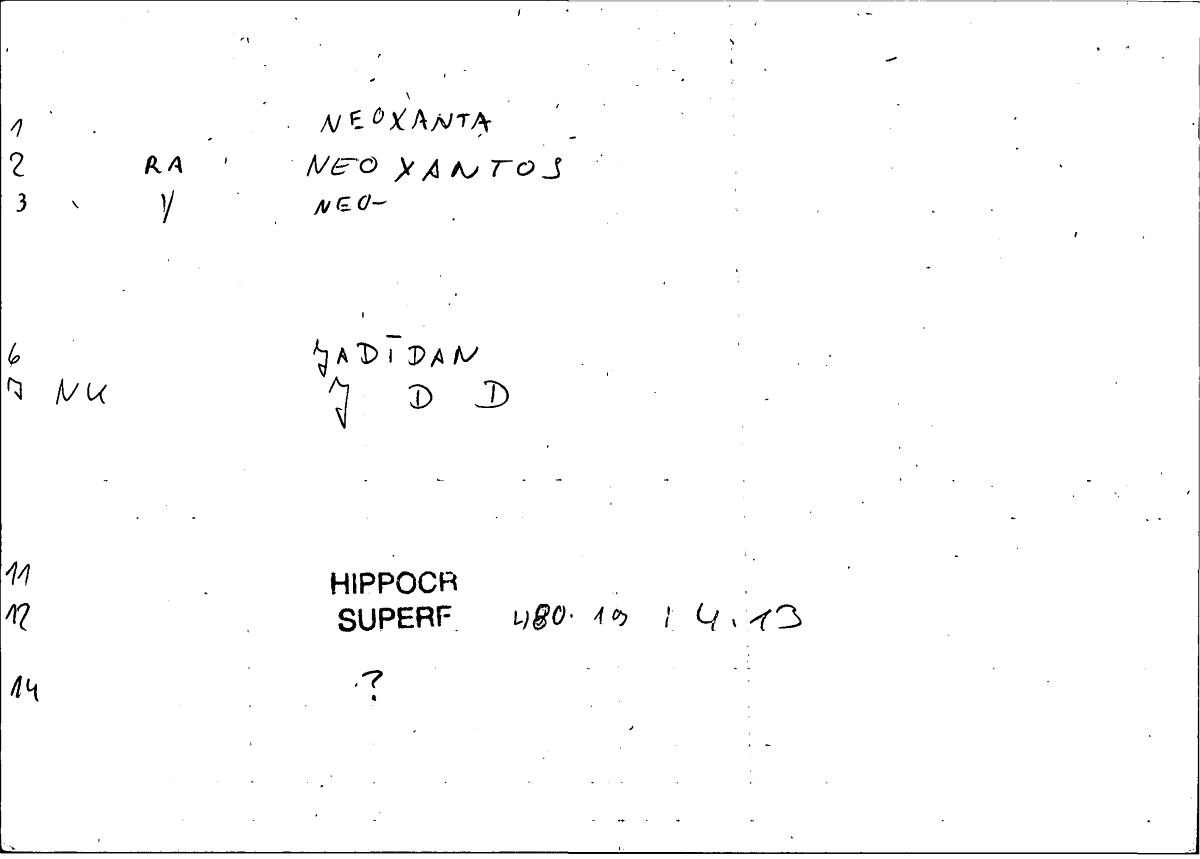 1 NEOXANTA
2 RA NEOXANTOS
3 y NEO-
6 JADĪDAN
7 NU J D D
11 HIPPOCR
12 SUPERF 480.19 | 4.13
14 ?